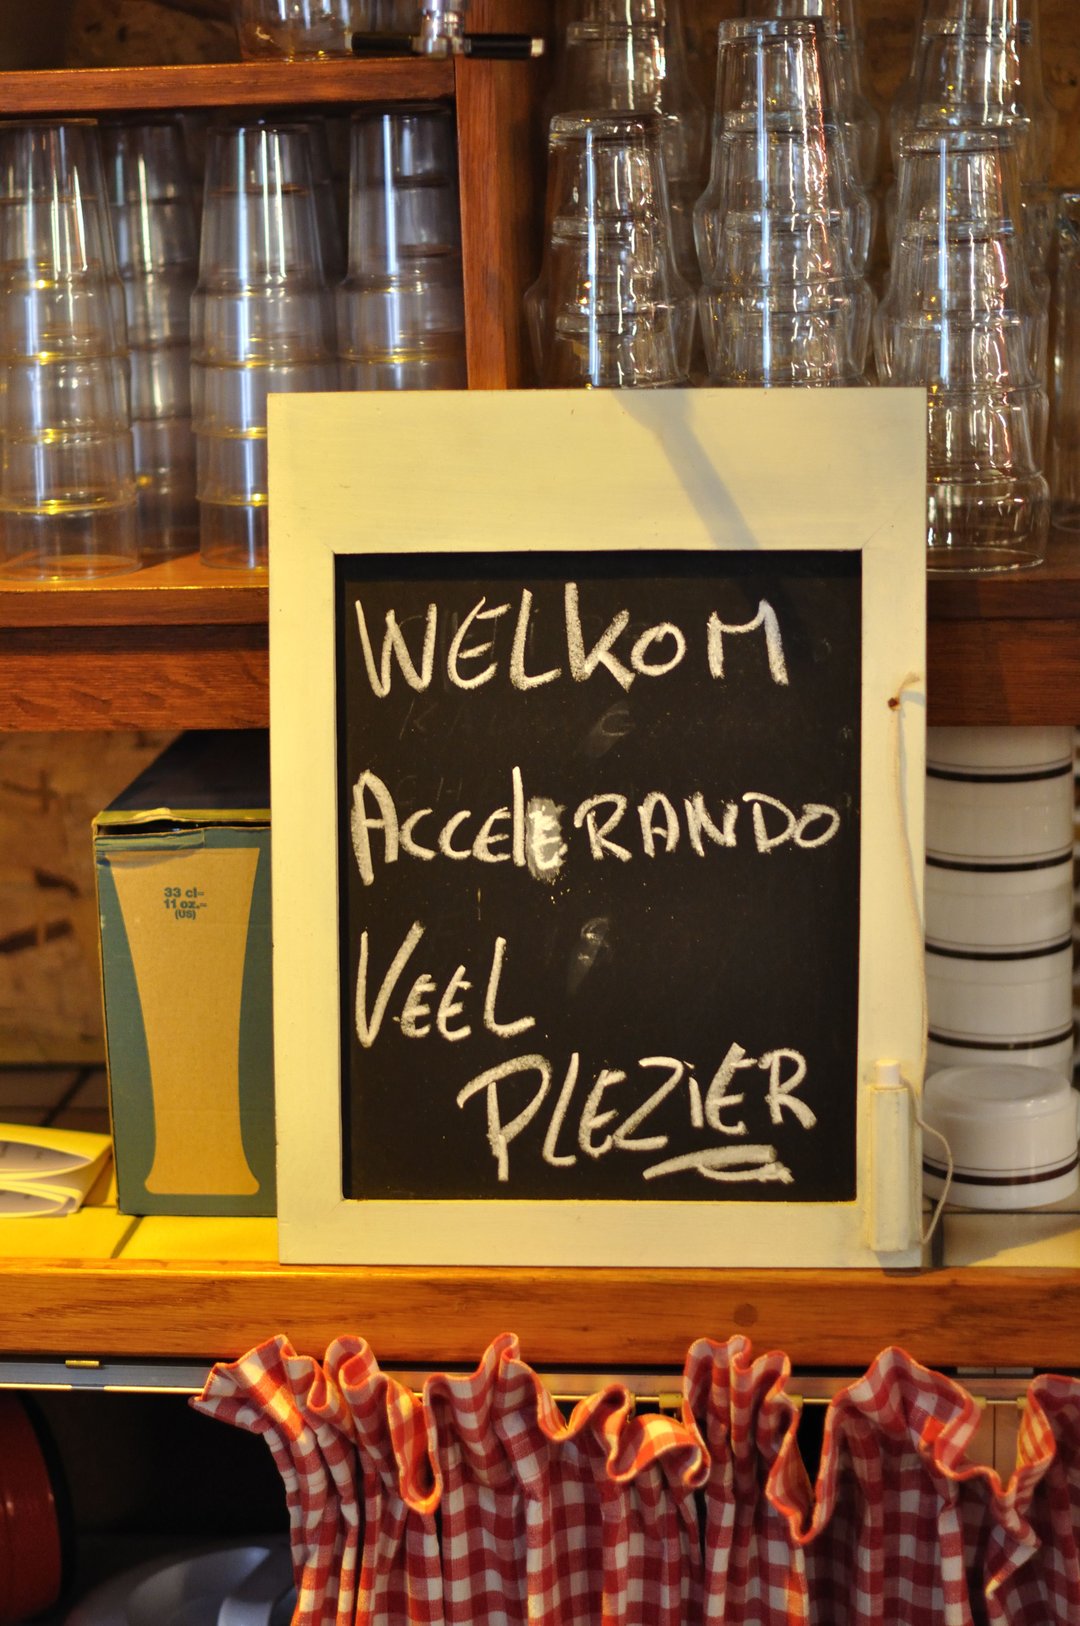 WELKOM
ACCELERANDO
VEEL
PLEZIER
33 cl=
11 oz.=
(US)